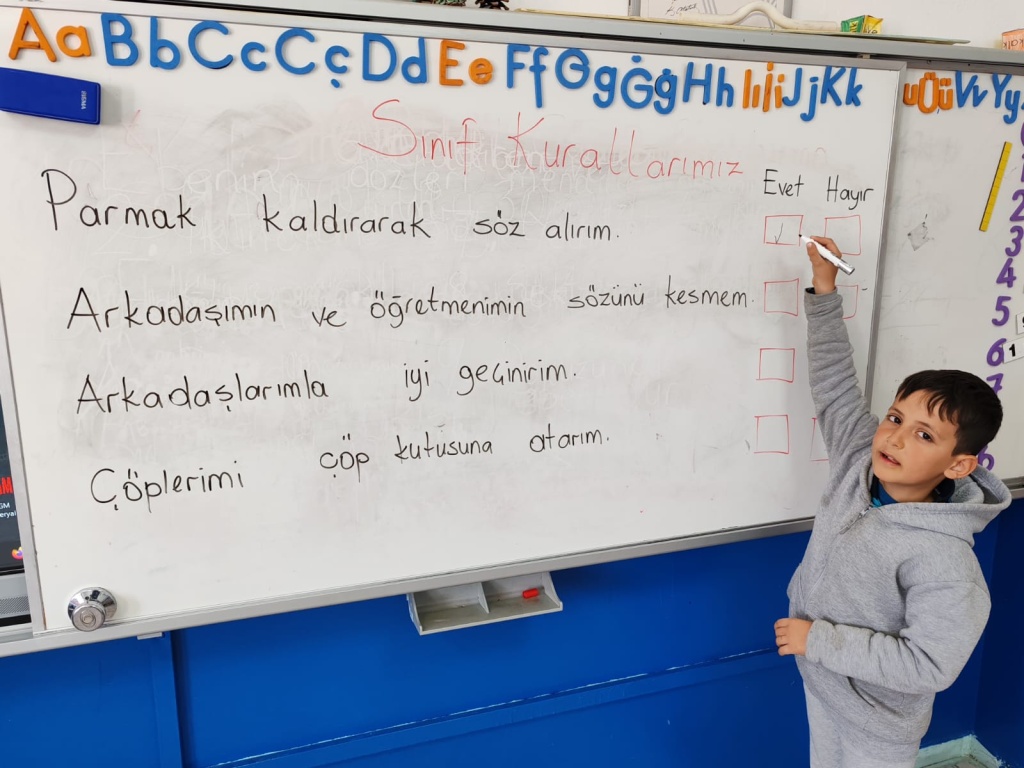 Aa Bb Cc Çç Dd Ee Ff Gg Ğğ Hh Iı İi Jj Kk
Üü Vv Yy
Sınıf Kurallarımız
Evet Hayır
Parmak kaldırarak söz alırım.
Arkadaşımın ve öğretmenimin sözünü kesmem.
Arkadaşlarımla iyi geçinirim.
Çöplerimi çöp kutusuna atarım.
2
3
4
5
6
1
7